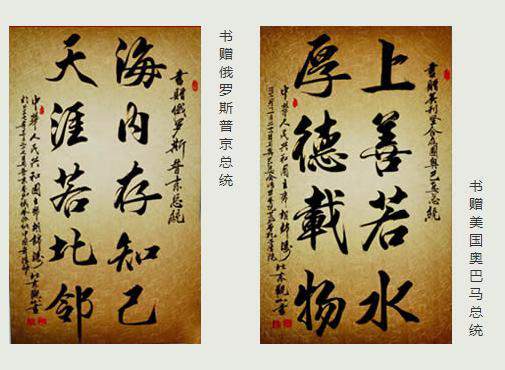 書贈俄罗斯普京总統
海内存知己
天涯若比邻
中华人民共和国主席胡錦涛
书赠俄罗斯普京总统
書贈美利堅合众国奥巴马总統
上善若水
厚德載物
中华人民共和国主席胡錦涛
书赠美国奥巴马总统